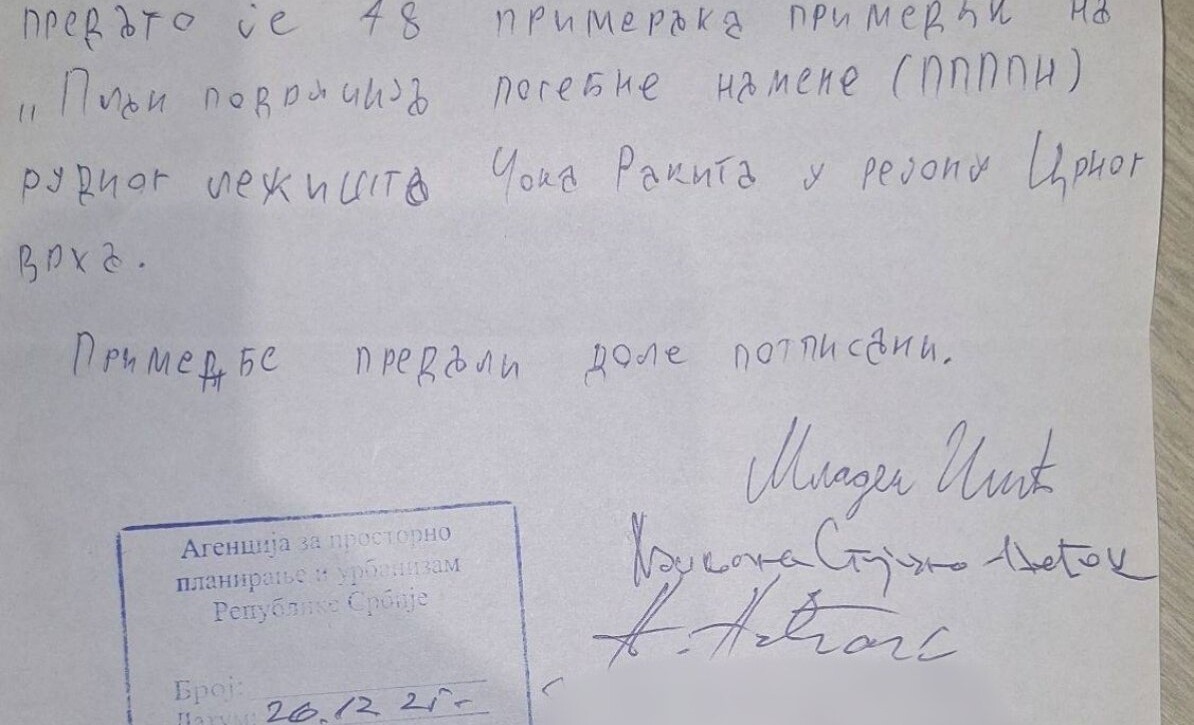 предато је 48 примерака примедби на
„План подручија посебне намене (ПППППН)
рудног лежишта Чока Ракита у рејону Црног
врха.
Примедбе предали доле потписани.
Младен
Агенција за просторно
планирање и урбанизам
Републике Србије
Број:
Датум: 26.12 25.